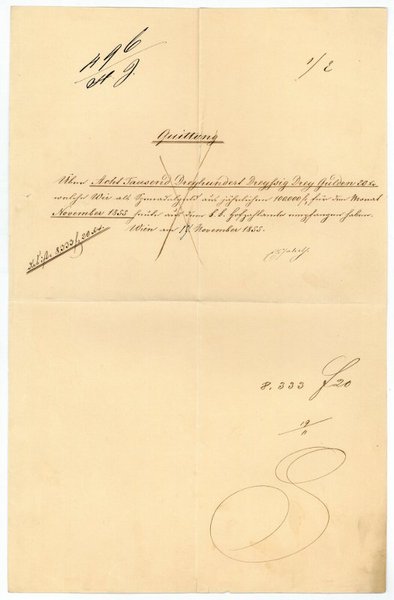 496
1/2
Quittung
Über Acht Tausend Dreyhundert Dreyssig Drey Gulden 20 x
welche Wir als Spenadelgeld aus jährlichen 100000 f, für den Monat
November 1855 aus dem k. k. Hofzahlamte empfangen haben.
Wien am November 1855.
8333 f 20 x
8.333 f 20
19/11